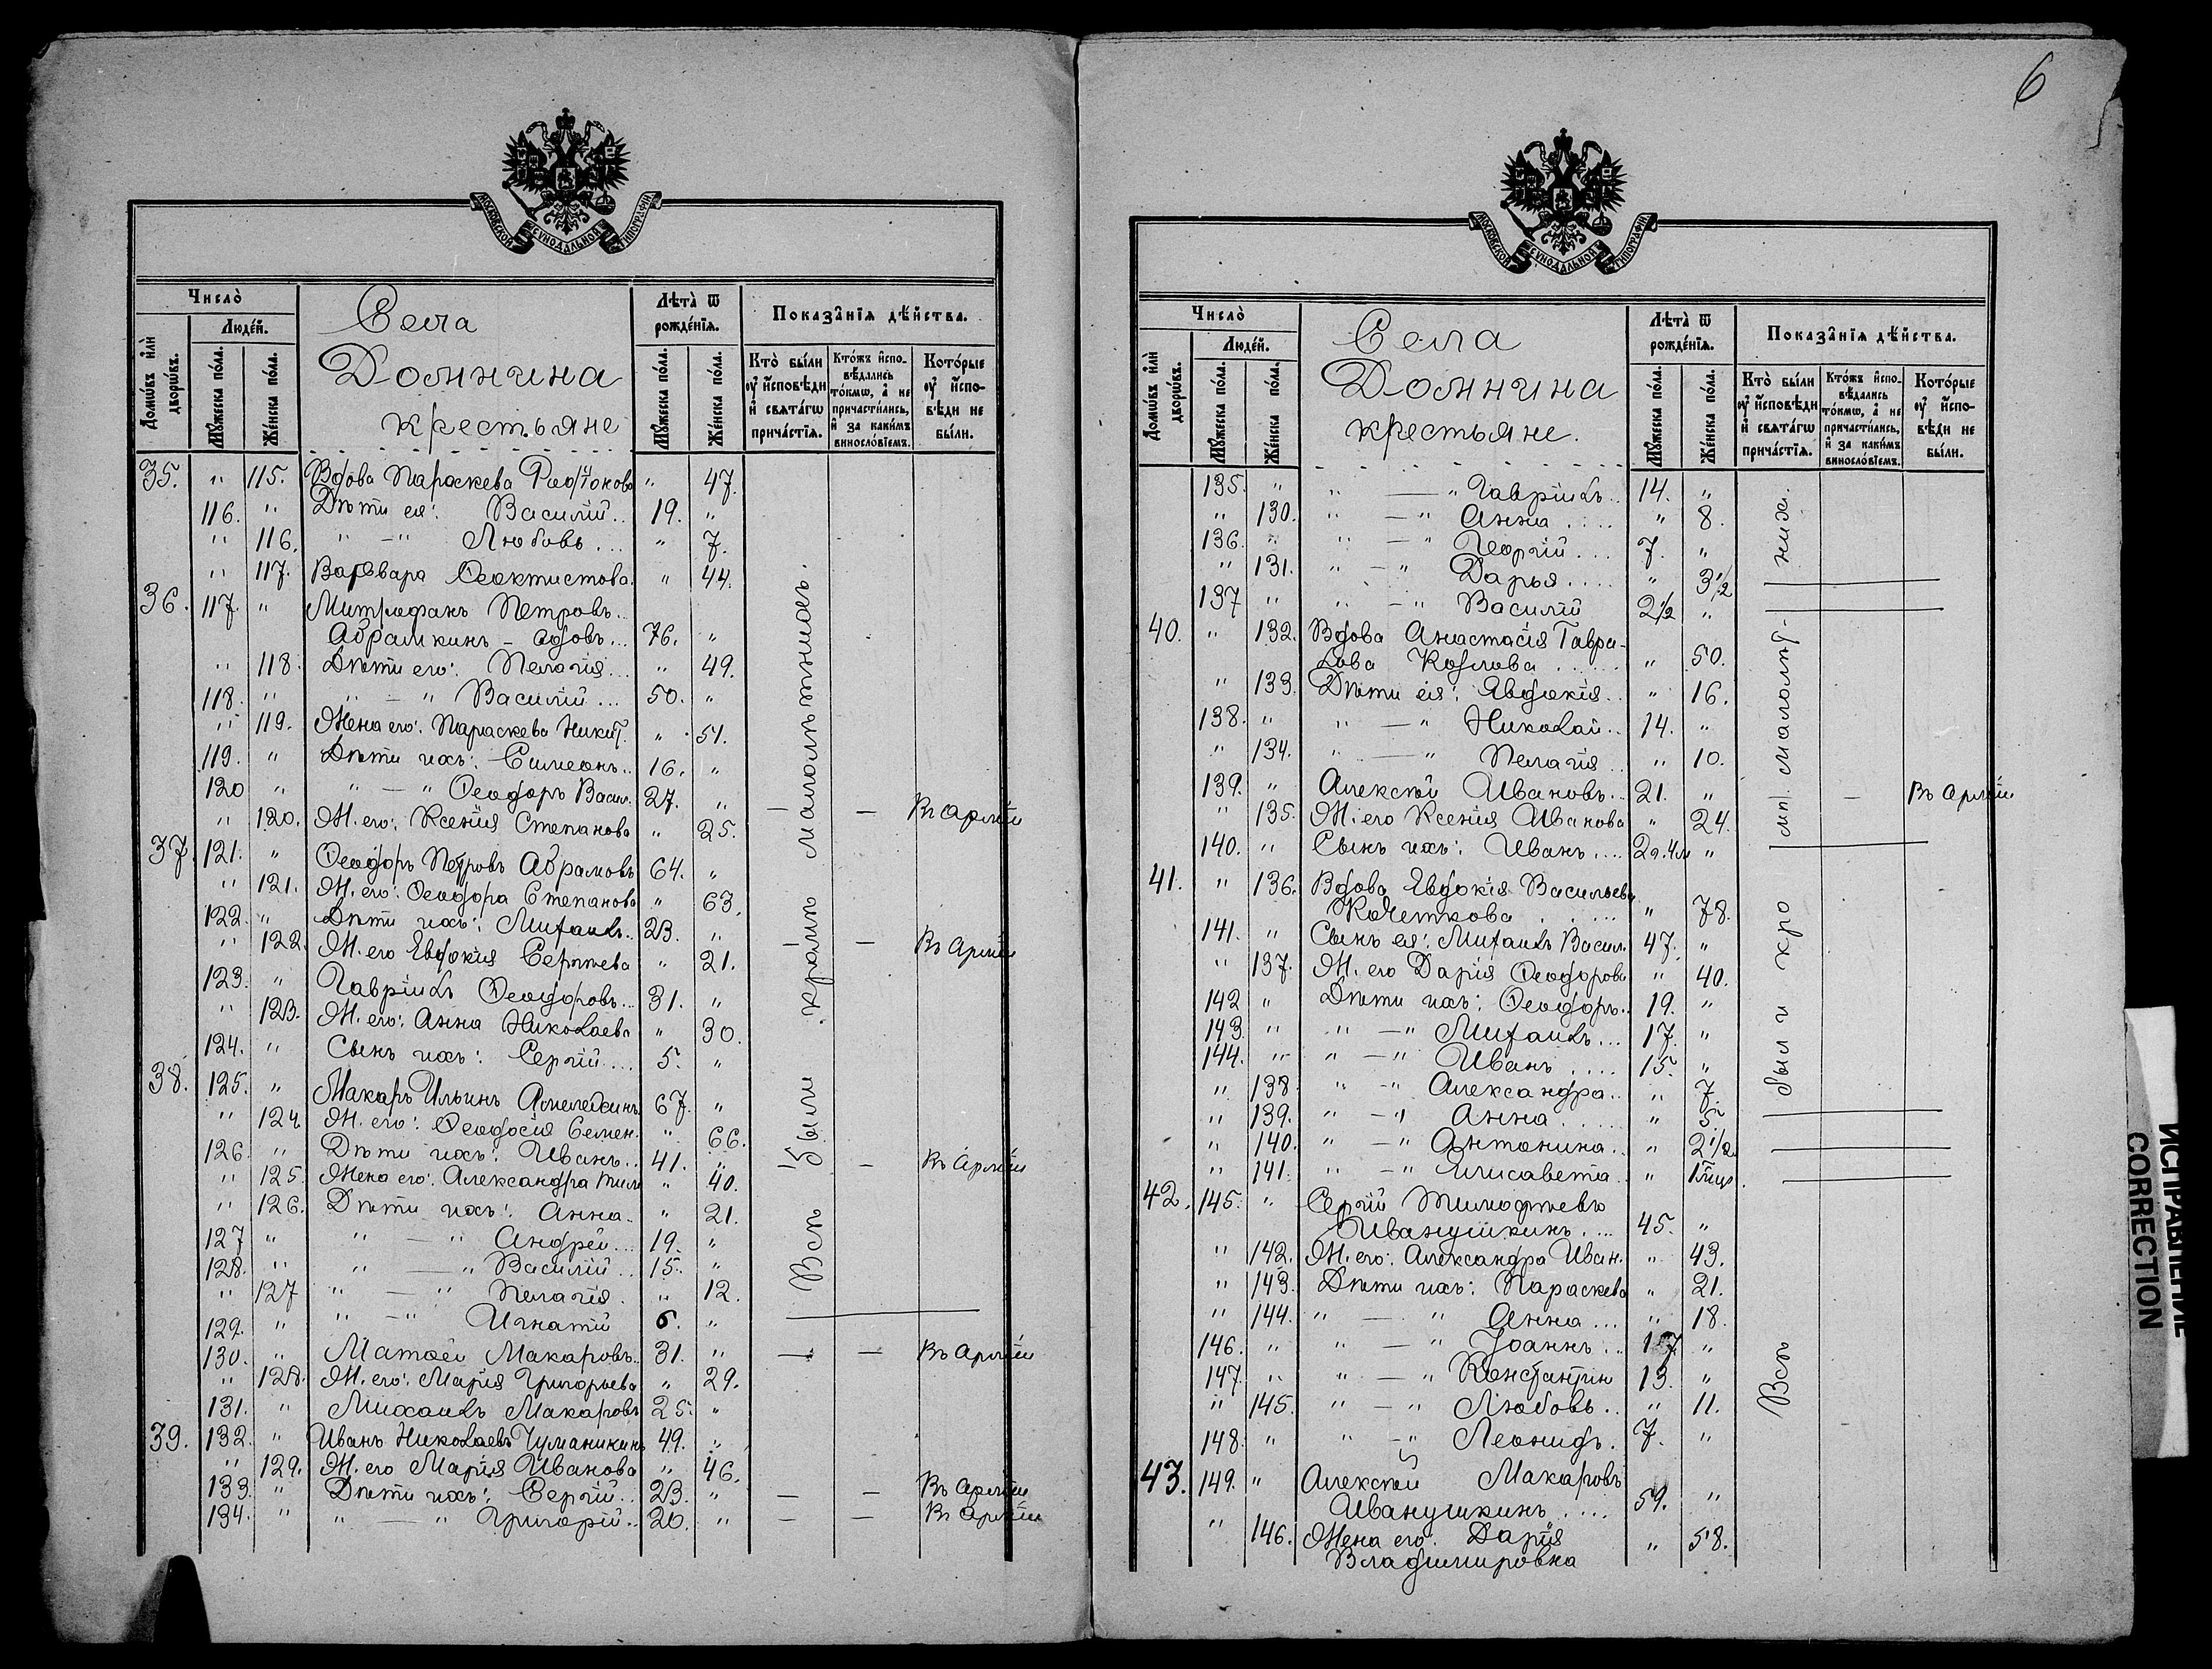 6
МОСКОВСКОЙ СѴНОДАЛЬНОЙ ТИПОГРАФІИ
Число̀
Люде́й.
Домѡ́въ и҆лѝ дворѡ́въ.
Мꙋ́жеска по́ла.
Же́нска по́ла.
Села
Домнина
крестьяне
Лѣта̀ ѿ рожде́нїѧ.
Мꙋ́жеска по́ла.
Же́нска по́ла.
Показа̑нїѧ дѣ́йства.
Кто̀ бы́ли ᲂу҆ и҆сповѣ́ди и҆ свѧта́гѡ прича́стїѧ.
Кто́жъ и҆спо-вѣ́дались то́кмѡ, а҆ не причасти́лись, и҆ за каки́мъ винносло́вїемъ.
Кото́рые ᲂу҆ и҆спо-вѣ́ди не бы́ли.
35. " 115. Вдова Параскева Родіонова " 47.
116. " Дѣти ея: Василій.. 19. "
" 116. " — " Любовь... " 7.
" 117. Варвара Ѳеоктистова. " 44.
36. 117. " Митрофанъ Петровъ..
Абрамкинъ - вдовъ... 76. "
" 118. Дѣти его: Пелагія... " 49.
118. " " — " Василій... 50. "
" 119. Жена его: Параскева Никит. " 51.
119. " Дѣти ихъ: Симеонъ.. 16. "
120 " " — " Ѳеодоръ Васил. 27. " — — Въ Арміи
" 120. Ж. его: Ксенія Степанова " 25.
37. 121. " Ѳеодоръ Петровъ Абрамовъ 64. "
" 121. Ж. его: Ѳеодора Степанова " 63.
122. " Дѣти ихъ: Михаилъ.. 23. " — Въ Арміи
" 122. Ж. его Евдокія Сергѣева " 21.
123. " Гавріилъ Ѳеодоровъ... 31. "
" 123. Ж. его: Анна Николаева " 30.
124. " Сынъ ихъ: Сергій.... 5. "
38. 125. " Макаръ Ильинъ Амелехинъ 67. "
" 124 Ж. его: Ѳеодосія Семен. " 66.
126. " Дѣти ихъ: Иванъ.. 41. " — Въ Арміи
" 125. Жена его: Александра Тим " 40.
" 126. Дѣти ихъ: Анна.. " 21.
127 " " — " Андрей... 19. "
128. " " — " Василій.. 15. "
" 127 " — " Пелагія. " 12.
129. " " — " Игнатій 6. "
130. " Матѳей Макаровъ.. 31. " — — Въ Арміи
" 128. Ж. его: Марія Григорьева " 29.
131. " Михаилъ Макаровъ 25. "
39. 132. " Иванъ Николаевъ Чуманикинъ 49. "
" 129. Ж. его Марія Иванова " 46.
133. " Дѣти ихъ: Сергій.. 23. " — — Въ Арміи
134. " " — " Григорій.. 20. " — — Въ Арміи
Всѣ были кромѣ малолѣтнихъ.
МОСКОВСКОЙ СѴНОДАЛЬНОЙ ТИПОГРАФІИ
Число̀
Люде́й.
Домѡ́въ и҆лѝ дворѡ́въ.
Мꙋ́жеска по́ла.
Же́нска по́ла.
Села
Домнина
крестьяне.
Лѣта̀ ѿ рожде́нїѧ.
Мꙋ́жеска по́ла.
Же́нска по́ла.
Показа̑нїѧ дѣ́йства.
Кто̀ бы́ли ᲂу҆ и҆сповѣ́ди и҆ свѧта́гѡ прича́стїѧ.
Кто́жъ и҆спо-вѣ́дались то́кмѡ, а҆ не причасти́лись, и҆ за каки́мъ винносло́вїемъ.
Кото́рые ᲂу҆ и҆спо-вѣ́ди не бы́ли.
135. " " — " Гавріилъ.. 14. "
" 130. " — " Анна.... " 8.
136. " " — " Георгій... 7. "
" 131. " — " Дарья.... " 3 1/2
137 " " — " Василій 2 1/2 "
40. " 132. Вдова Анастасія Гаври-
лова Козлова...... " 50.
" 133. Дѣти ея: Евдокія.. " 16.
138. " " — " Николай.. 14. "
" 134. " — " Пелагія.. " 10.
139. " Алексѣй Ивановъ.. 21. " — Въ Арміи
" 135. Ж. его Ксенія Иванова " 24.
140. " Сынъ ихъ: Иванъ.... 2г.4м "
41. " 136. Вдова Евдокія Васильева
Кочеткова..... " 78.
141. " Сынъ ея: Михаилъ Васил. 47. "
" 137. Ж. его Дарія Ѳеодорова " 40.
142 " Дѣти ихъ: Ѳеодоръ.. 19. "
143 " " — " Михаилъ... 17. "
144. " " — " Иванъ.... 15. "
" 138 " — " Александра.. " 7.
" 139. " — " Анна..... " 5.
" 140. " — " Антонина.. " 2 1/2
" 141. " — " Елисавета.. "
42. 145. " Сергій Тимофѣевъ
Иванушкинъ.... 45. "
" 142. Ж. его: Александра Иван. " 43.
" 143. Дѣти ихъ: Параскева " 21.
" 144. " — " Анна... " 18.
146. " " — " Іоаннъ.. 17 "
147. " " — " Константин 13. "
" 145. " — " Любовь.. " 11.
148. " " — " Леонидъ. 7. "
43. 149. " Алексѣй Макаровъ
Иванушкинъ.... 59. "
" 146. Жена его: Дарія " 58.
Владимировна
Всѣ были кромѣ малолѣтнихъ.
ИСПРАВЛЕНИЕ
CORRECTION